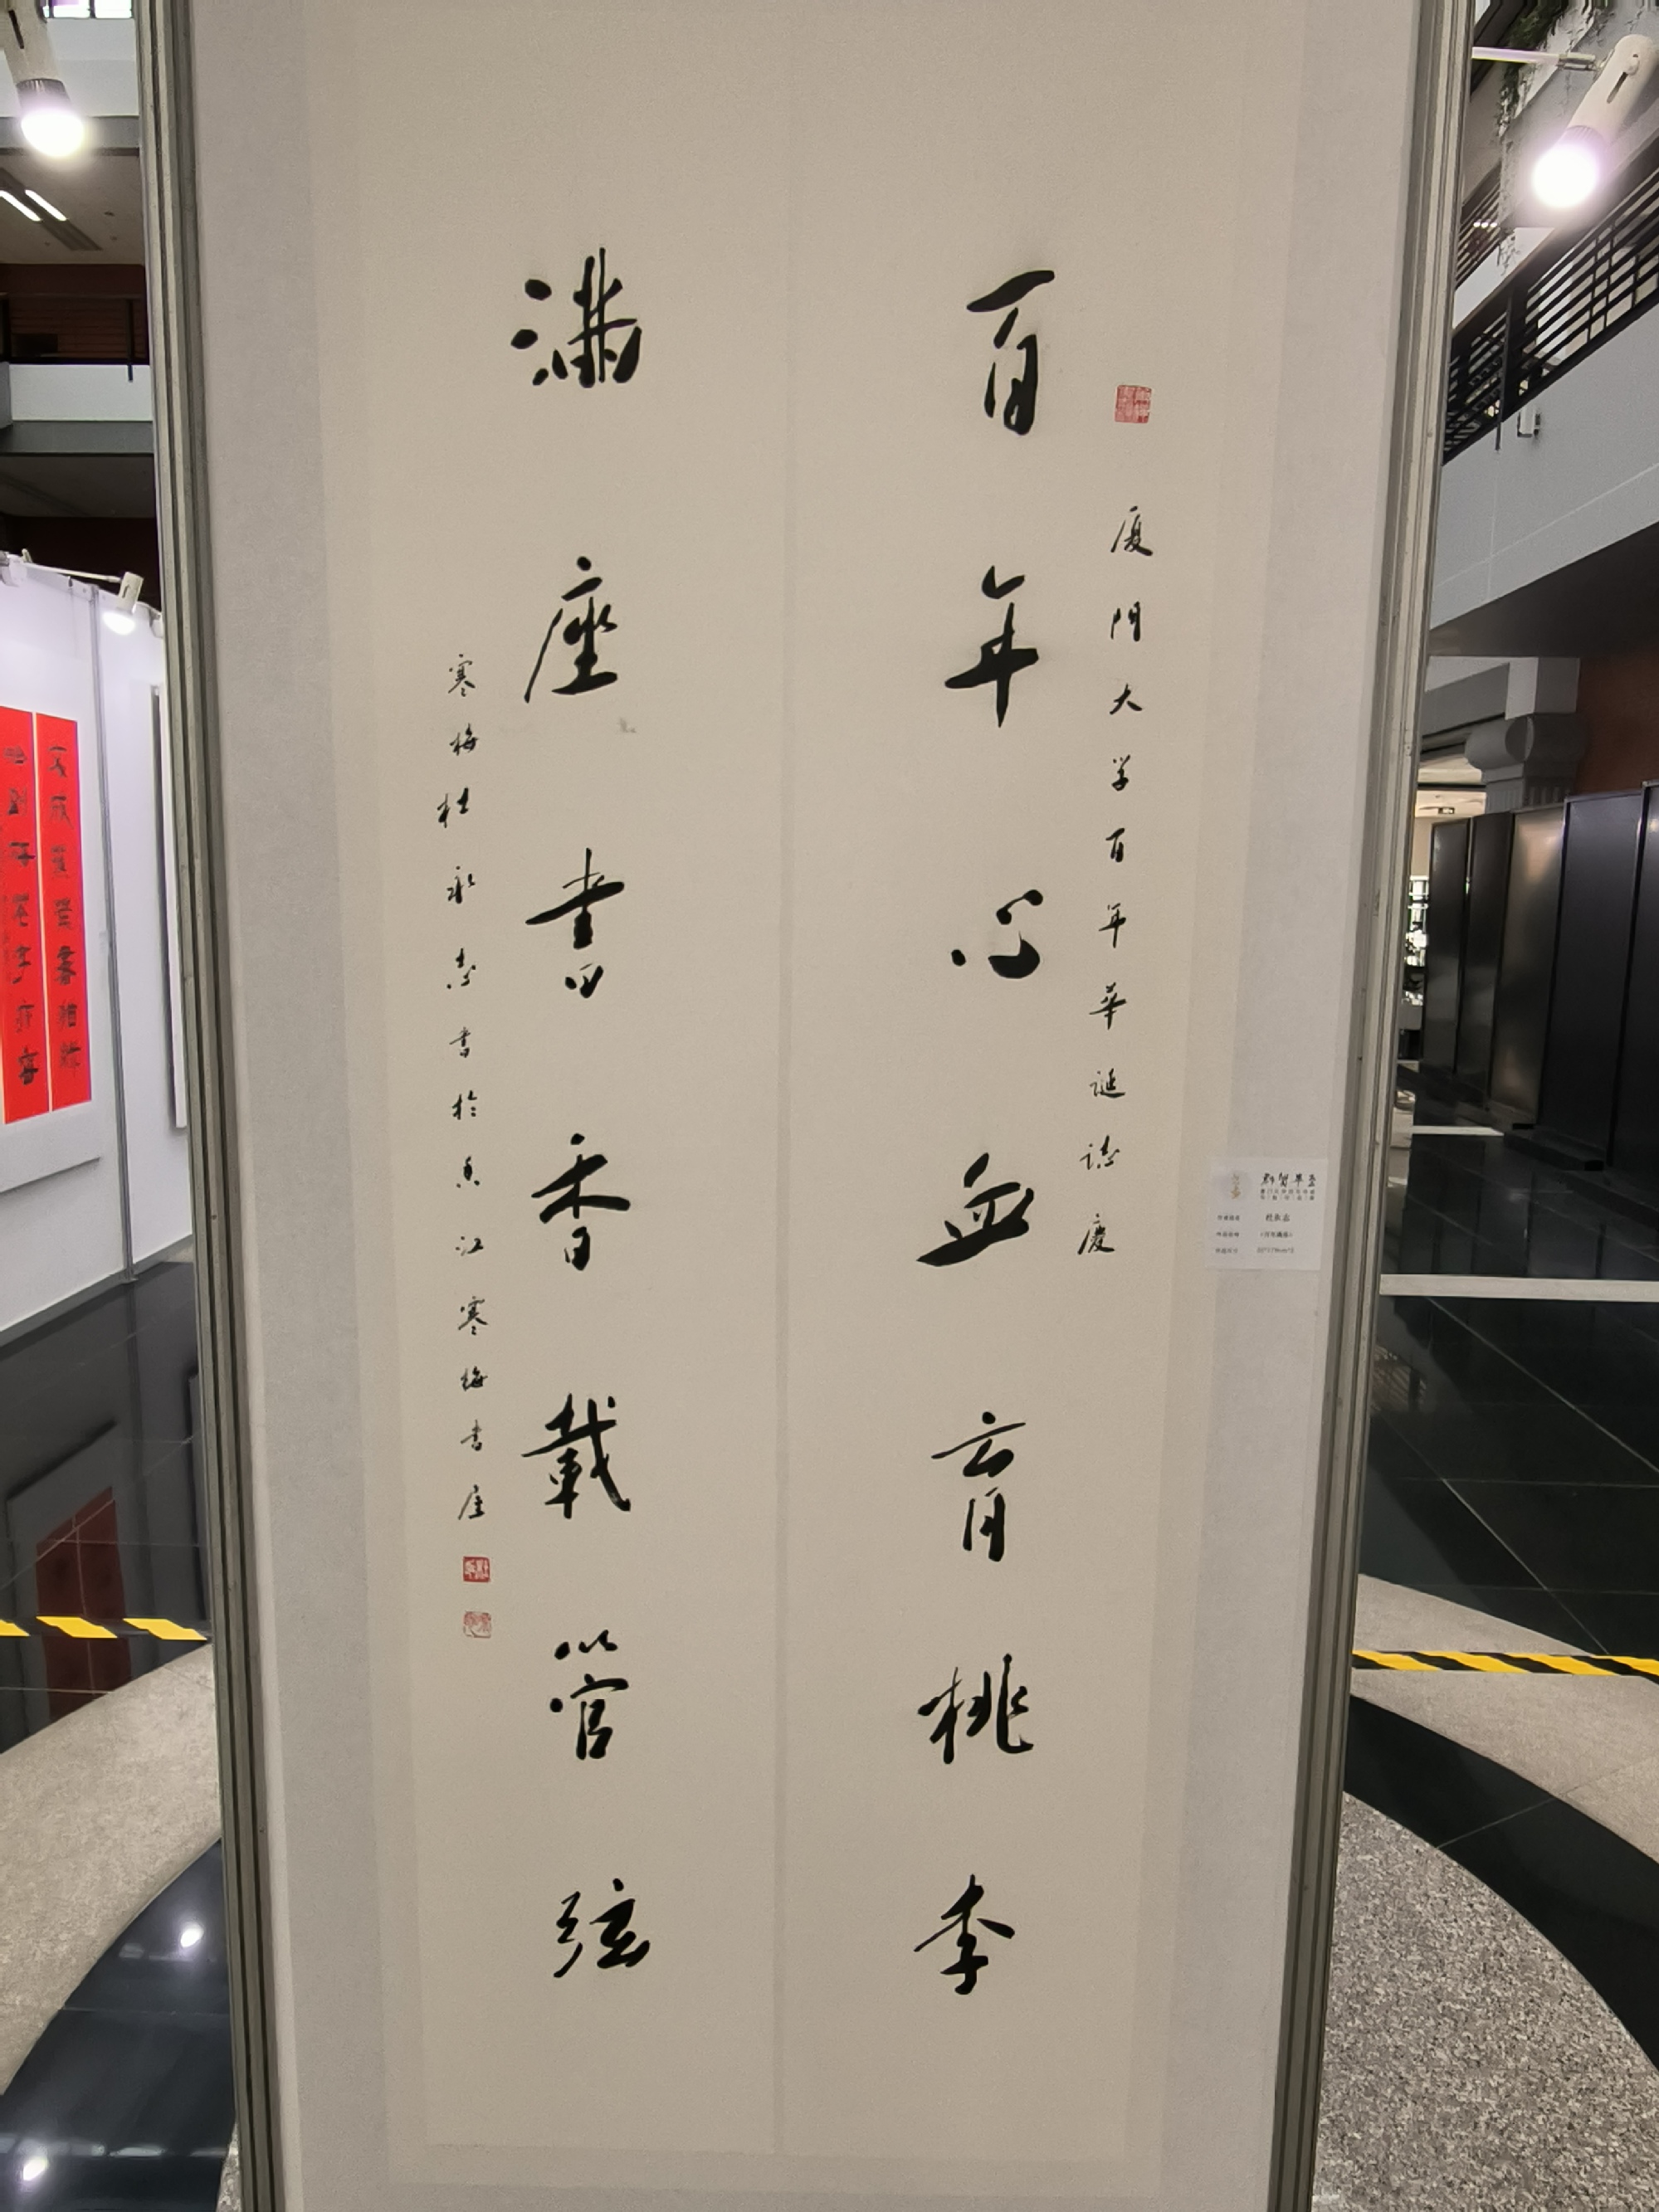 厦門大学百年華誕誌慶
百年心血育桃李
满座書香載管弦
寒梅杜永志書於香江寒梅書屋